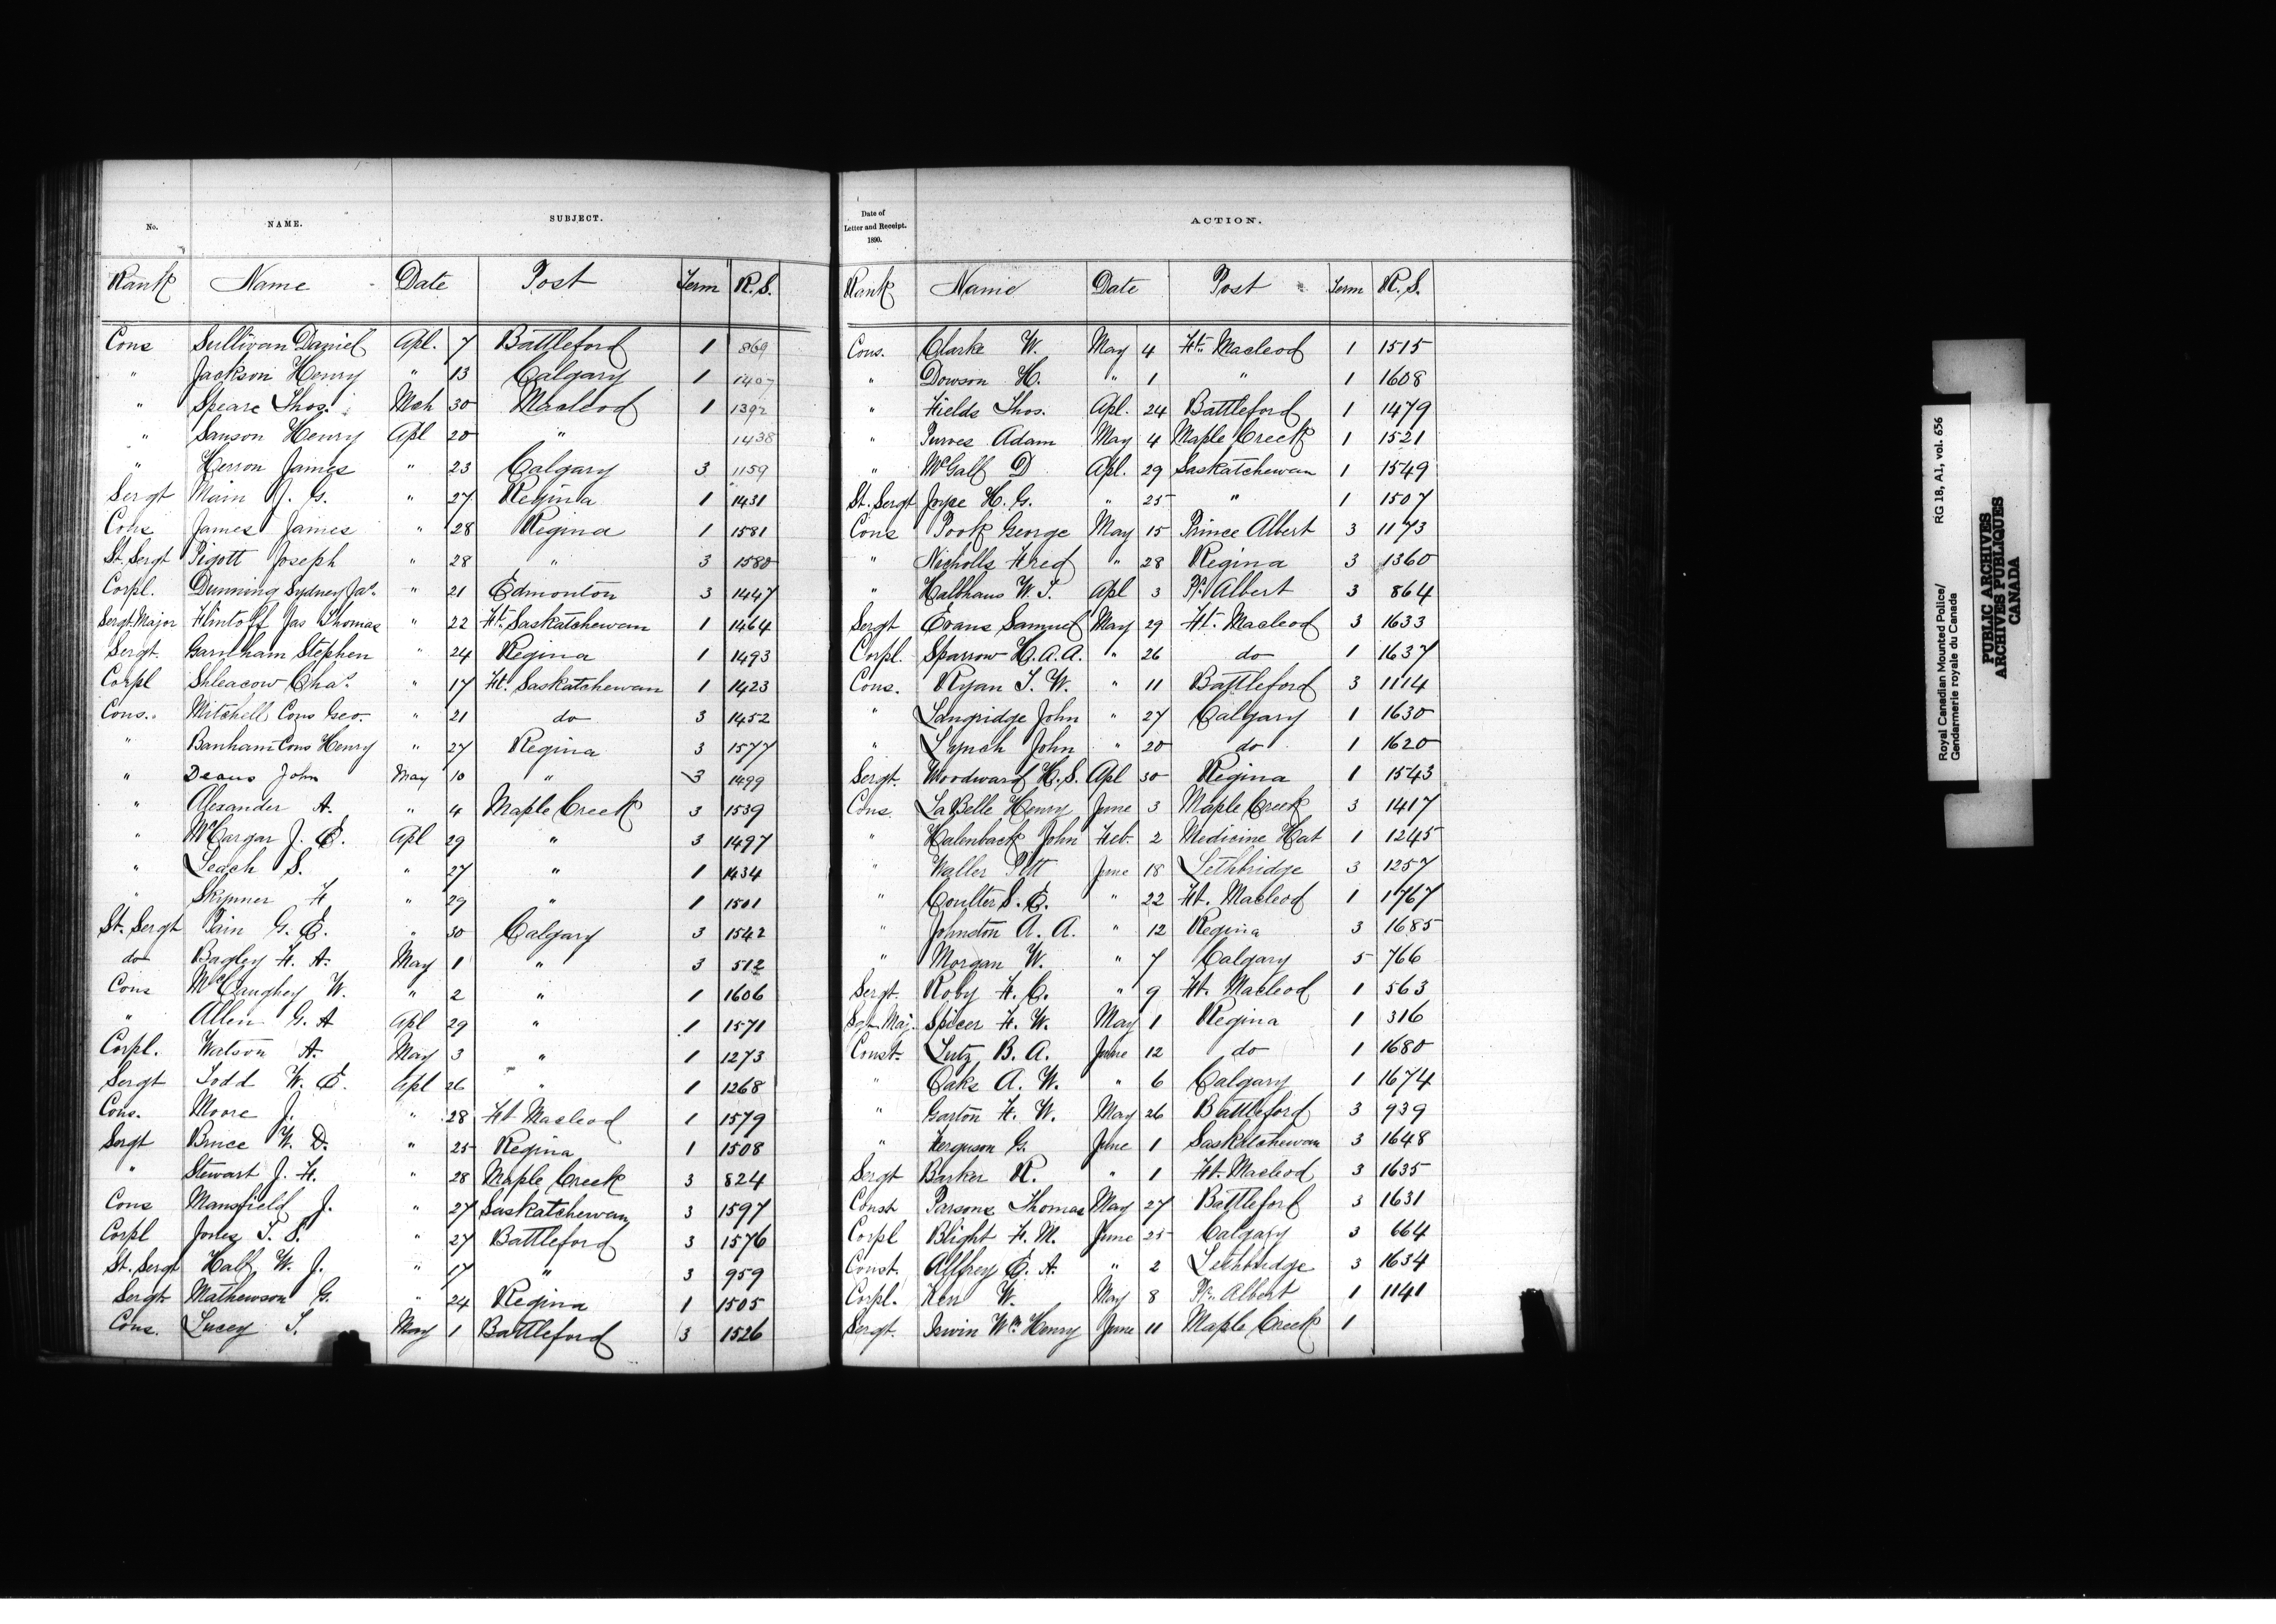 No. NAME. SUBJECT.
Rank Name Date Post Term R.S.
Cons Sullivan Daniel Apl. 7 Battleford 1 869
" Jackson Henry " 13 Calgary 1 1407
" Speare Thos. Mch 30 Macleod 1 1392
" Sanson Henry Apl 20 " 1438
" Herron James " 23 Calgary 3 1159
Sergt Main J. G. " 27 Regina 1 1431
Cons James James " 28 Regina 1 1581
St. Sergt Pigott Joseph " 28 " 3 1580
Corpl. Dunning Sydney Jas. " 21 Edmonton 3 1447
Sergt. Major Flintoff Jas Thomas " 22 Ft. Saskatchewan 1 1464
Sergt. Garnham Stephen " 24 Regina 1 1493
Corpl Shleacow Chas. " 17 Ft. Saskatchewan 1 1423
Cons. Mitchell Cons Geo. " 21 do 3 1452
" Banham Cons Henry " 27 Regina 3 1577
" Deans John May 10 " 3 1499
" Alexander A. " 4 Maple Creek 3 1539
" McCargar J. E. Apl 29 " 3 1497
" Leach S. " 27 " 1 1434
" Skynner F " 29 " 1 1501
St. Sergt Pain G. E. " 30 Calgary 3 1542
do Bagley F. A. May 1 " 3 512
Cons McCaughey W. " 2 " 1 1606
" Allen G. A Apl 29 " 1 1571
Corpl. Watson A. May 3 " 1 1273
Sergt Todd W. E. Apl 26 " 1 1268
Cons. Moore J. " 28 Ft. Macleod 1 1579
Sergt Bruce W. D. " 25 Regina 1 1508
" Stewart J. F. " 28 Maple Creek 3 824
Cons Mansfield J. " 27 Saskatchewan 3 1597
Corpl Jones T. S. " 27 Battleford 3 1576
St. Sergt Hall W. J. " 17 " 3 959
Sergt Mathewson G. " 24 Regina 1 1505
Cons. Lucey T. May 1 Battleford 3 1526
Date of
Letter and Receipt.
1890.
ACTION.
Rank Name Date Post Term R.S.
Cons. Clarke W. May 4 Ft. Macleod 1 1515
" Dowson H. " 1 " 1 1608
" Fields Thos. Apl. 24 Battleford 1 1479
" Purves Adam May 4 Maple Creek 1 1521
" McGall D Apl. 29 Saskatchewan 1 1549
St. Sergt Joyce H. G. " 25 " 1 1507
Cons Pook George May 15 Prince Albert 3 1173
" Nicholls Fred " 28 Regina 3 1360
" Halbhaus W. T. Apl 3 Pr. Albert 3 864
Sergt Evans Samuel May 29 Ft. Macleod 3 1633
Corpl. Sparrow H. A. A. " 26 do 1 1637
Cons. Ryan T. W. " 11 Battleford 3 1114
" Langridge John " 27 Calgary 1 1630
" Lynch John " 20 do 1 1620
Sergt. Woodward H. S. Apl 30 Regina 1 1543
Cons. LaBelle Henry June 3 Maple Creek 3 1417
" Halenback John Feb. 2 Medicine Hat 1 1245
" Waller Pitt June 18 Lethbridge 3 1257
" Coulter S. E. " 22 Ft. Macleod 1 1767
" Johnston A. A. " 12 Regina 3 1685
" Morgan W. " 7 Calgary 5 766
Sergt. Roby F. C. " 9 Ft. Macleod 1 563
Sgt. Maj. Spicer F. W. May 1 Regina 1 316
Const. Lutz B. A. June 12 do 1 1680
" Oaks A. W. " 6 Calgary 1 1674
" Garton F. W. May 26 Battleford 3 939
" Ferguson G. June 1 Saskatchewan 3 1648
Sergt Barker R. " 1 Ft. Macleod 3 1635
Const Parsons Thomas May 27 Battleford 3 1631
Corpl Blight F. M. June 25 Calgary 3 664
Const. Allfrey E. A. " 2 Lethbridge 3 1634
Corpl. Kerr W. May 8 Pr. Albert 1 1141
Sergt. Irwin Wm. Henry June 11 Maple Creek 1
Royal Canadian Mounted Police/ RG 18, A1, vol. 656
Gendarmerie royale du Canada
PUBLIC ARCHIVES
ARCHIVES PUBLIQUES
CANADA